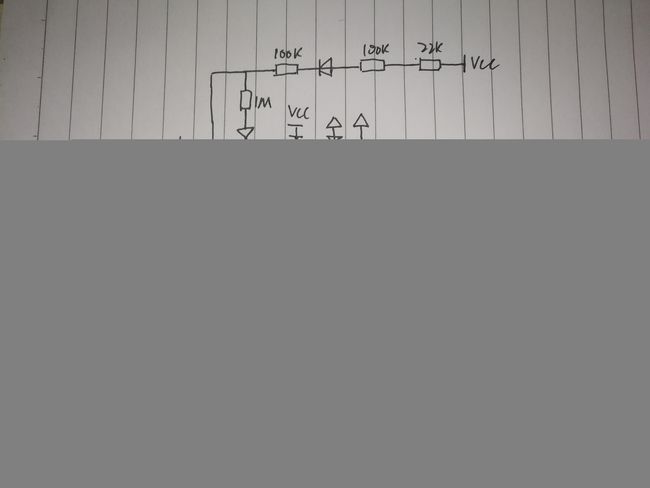 100K 100K 22K
VCC
1M
VCC